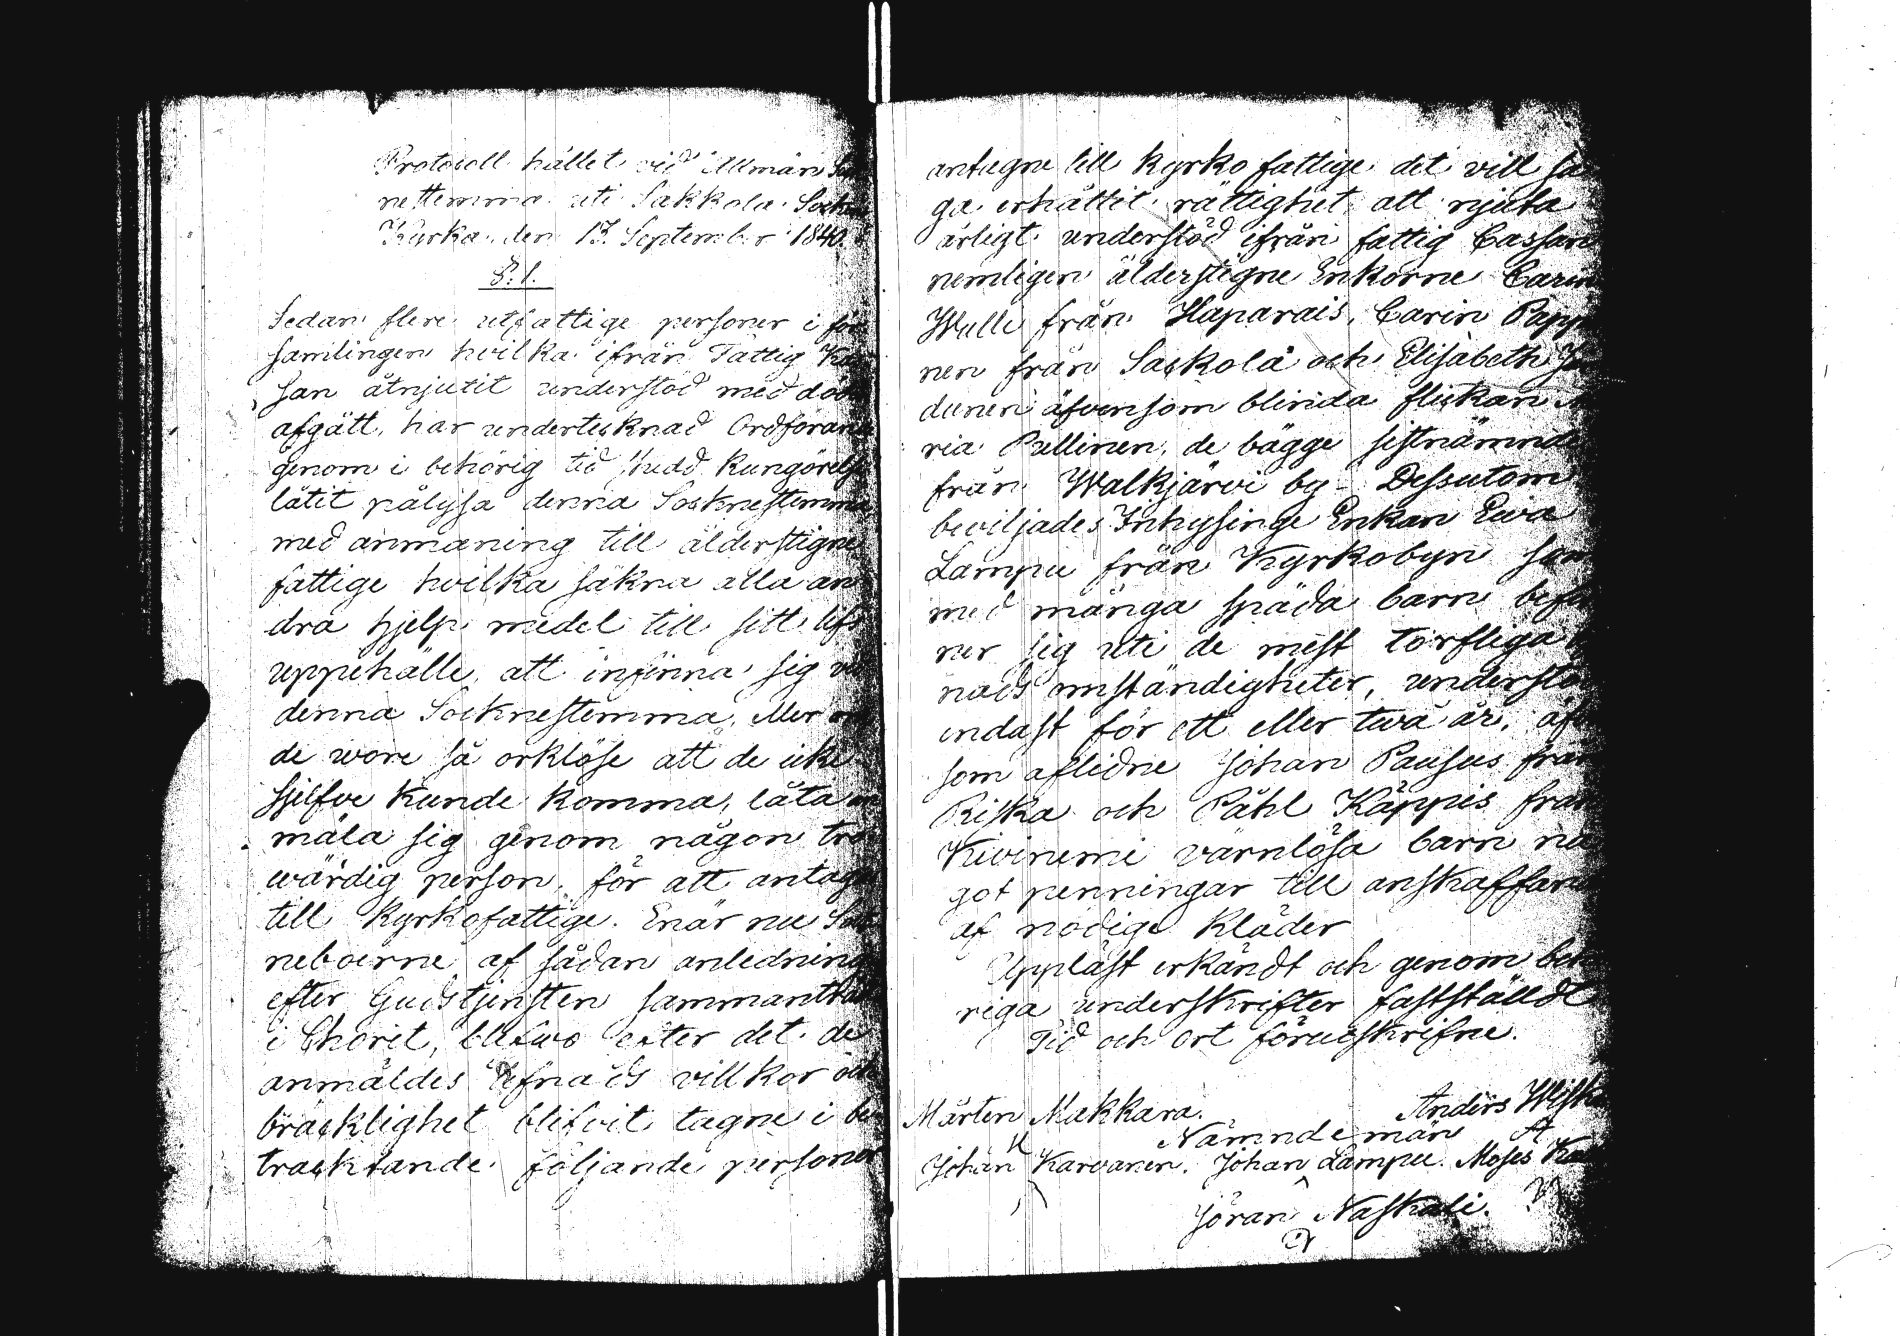 Protocoll hållet vid Allmän Sock
nestemma uti Sakkola Sockne
Kyrka den 13 September 1840.
§. 1.
Sedan flere utfattige personer i för
samlingen hvilka ifrån Fattig Kas
san åtnjutit understöd med döde
afgått, har undertecknad Ordförande
genom i behörig tid skedd Kungörelse
låtit pålysa denna Socknestemma
med anmaning till ålderstigne
fattige hvilka sakna alla an
dra hjelp medel till sitt lifs
uppehälle, att infinna sig vid
denna Socknestemma, eller om
de wore så orklöse att de icke
sjelfve kunde komma, låta an
mäla sig genom någon tro
wärdig person, för att antagas
till Kyrkofattige. Enär nu Sock
neboerne af sådan anledning
efter Gudstjensten sammanträdt
i Choret, blefwo efter det de
anmäldes lefnads villkor och
bräcklighet blifvit tagne i be
tracktande följande personer
antagne till Kyrko fattige det vill sä
ga erhållit rättighet att njuta
årligt understöd ifrån fattig Cassan
nemligen ålderstigne Enkorne Carin
Wulle från Haparais, Carin Papp
nen från Sackola och Elisabeth
dunen äfvensom blinda flickan Ma
ria Pullinen, de bägge sistnämnde
från Walkjärvi by - Dessutom
beviljades Inhysinge Enkan Ewa
Lampu från Kyrkobyn som
med många späda barn befin
ner sig uti de mest torftiga lef
nads omständigheter, understöd
endast för ett eller twå år, äfven
som aflidne Johan Pausus från
Riska och Påhl Käppis från
Kivinemi värnlösa barn nå
got penningar till anskaffande
af nödige kläder
Uppläst erkändt och genom behö
riga underskrifter fastställdt
Tid och ort förutskrifne.
Mårten Makkara. Anders
Nämndemän
Johan Karvanen. Johan Lampu. Moses
Jöran Naskali.